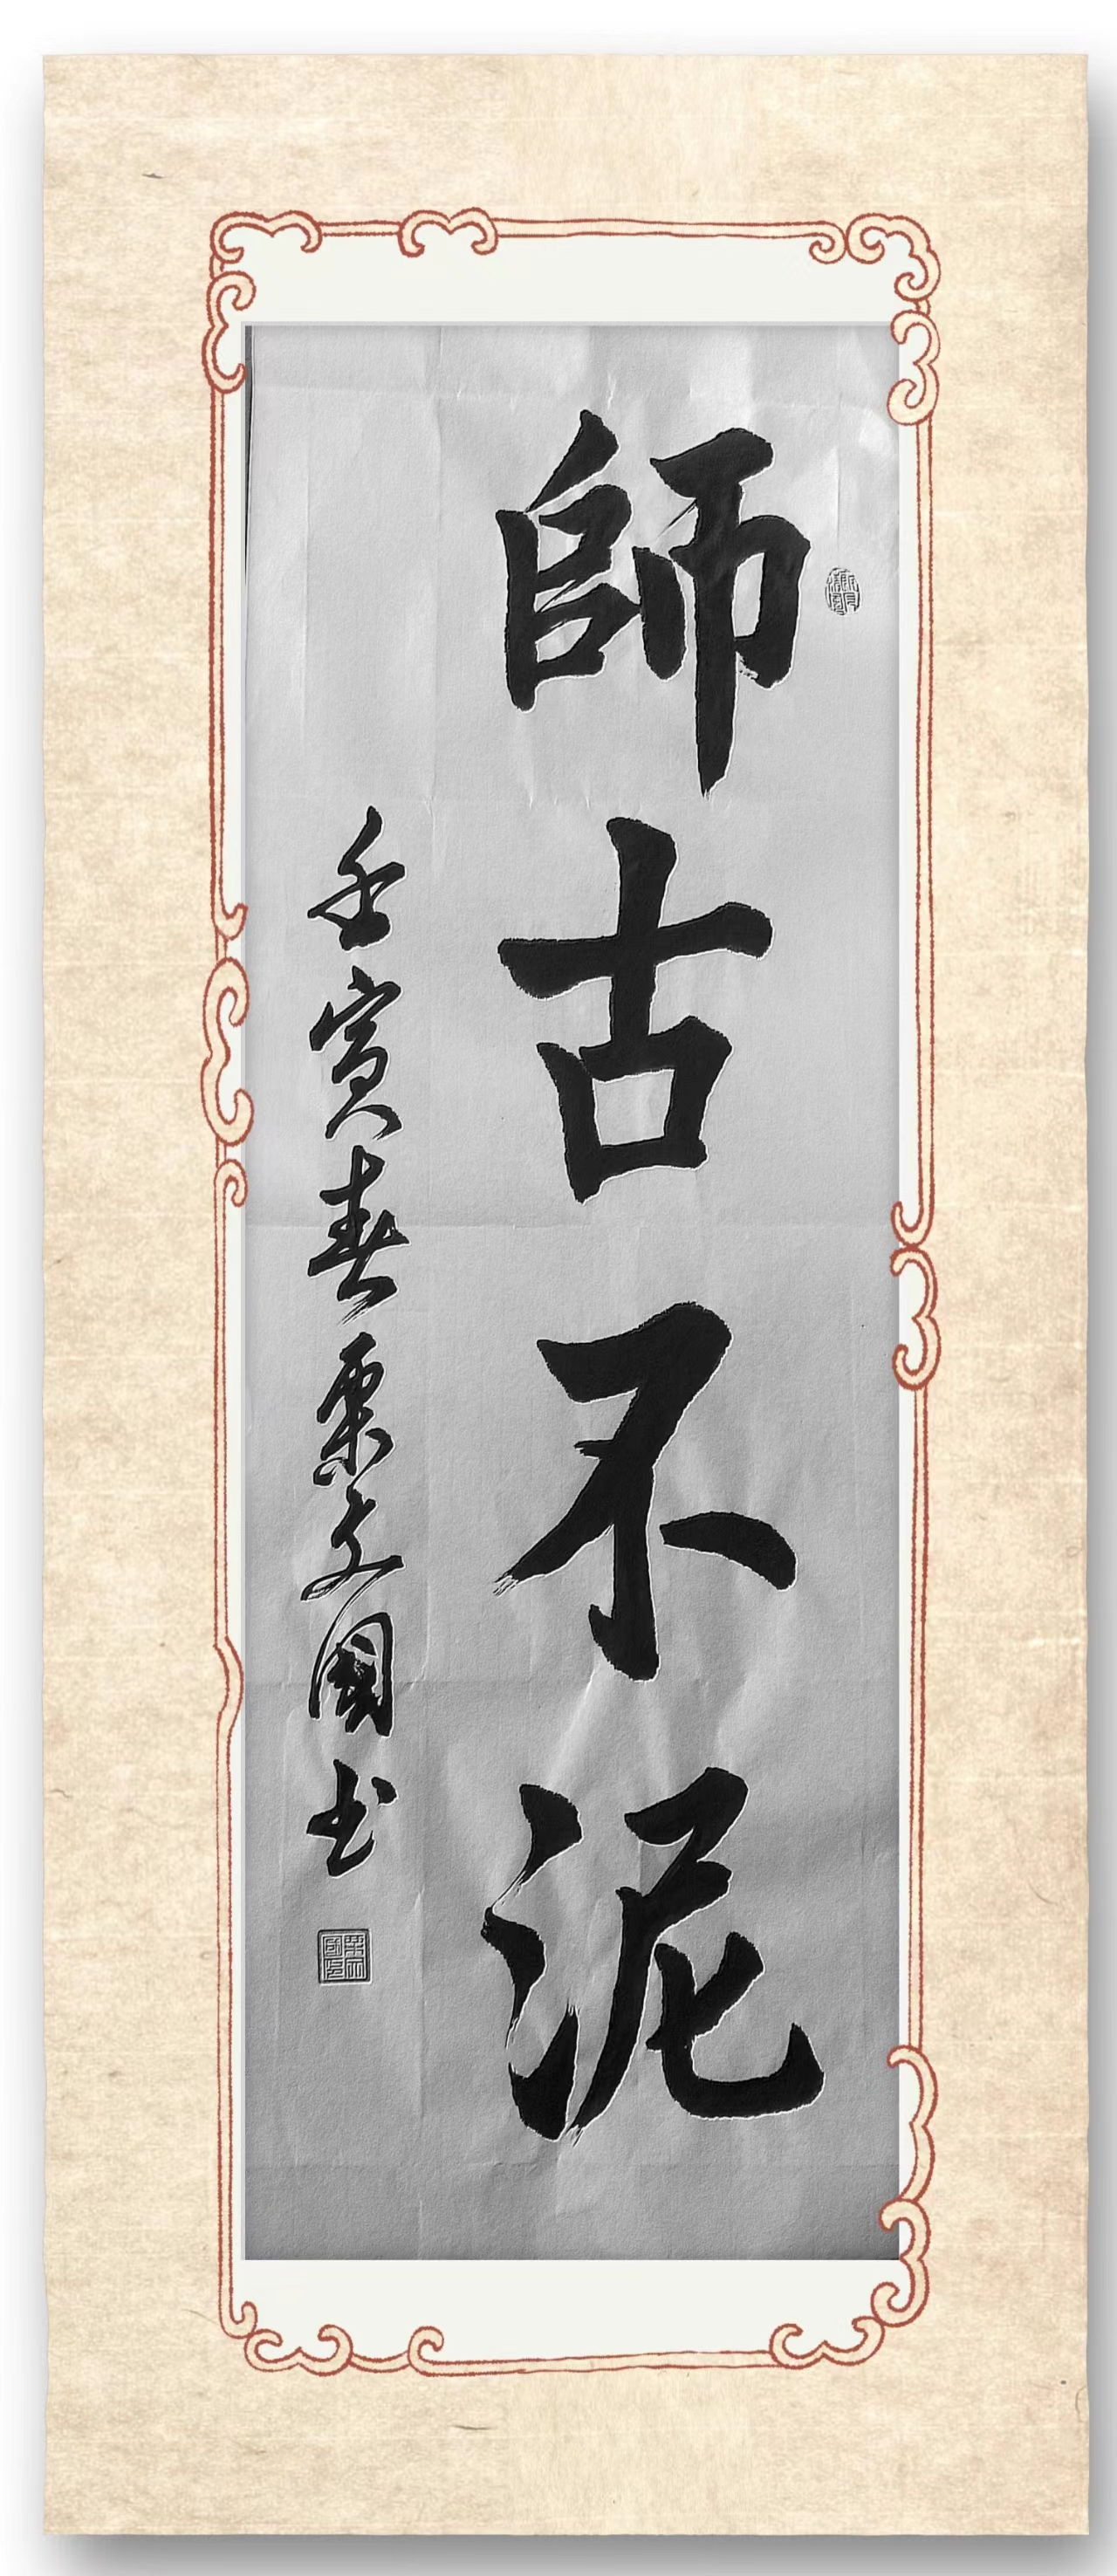 師古不泥
壬寅春栗文國书